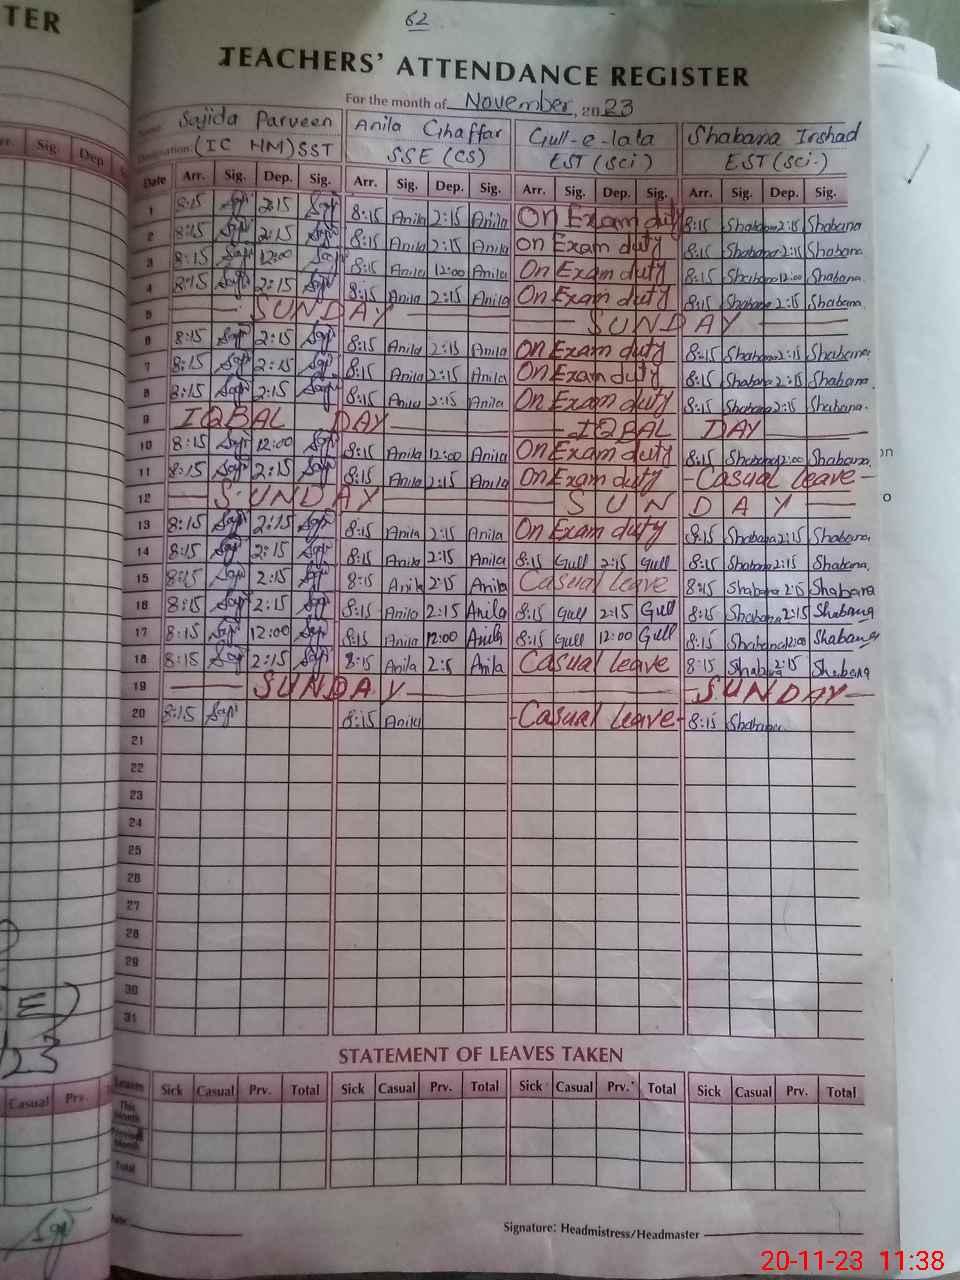 TER
62
TEACHERS' ATTENDANCE REGISTER
For the month of November, 2023
Name: Sajida Parveen Anila Ghaffar Gull-e-lala Shabana Irshad
Designation: (IC HM) SST SSE (CS) EST (Sci) EST (Sci.)
Date Arr. Sig. Dep. Sig. Arr. Sig. Dep. Sig. Arr. Sig. Dep. Sig. Arr. Sig. Dep. Sig.
1 8:15 2:15 8:15 Anila 2:15 Anila On Exam duty 8:15 Shabana 2:15 Shabana
2 8:15 2:15 8:15 Anila 2:15 Anila on Exam duty 8:15 Shabana 2:15 Shabana
3 8:15 12:00 8:15 Anila 12:00 Anila On Exam duty 8:15 Shabana 12:00 Shabana
4 8:15 2:15 8:15 Anila 2:15 Anila On Exam duty 8:15 Shabana 2:15 Shabana
5 SUNDAY SUNDAY
6 8:15 2:15 8:15 Anila 2:15 Anila On Exam duty 8:15 Shabana 2:15 Shabana
7 8:15 2:15 8:15 Anila 2:15 Anila On Exam duty 8:15 Shabana 2:15 Shabana
8 8:15 2:15 8:15 Anila 2:15 Anila On Exam duty 8:15 Shabana 2:15 Shabana
9 IQBAL DAY IQBAL DAY
10 8:15 12:00 8:15 Anila 12:00 Anila On Exam duty 8:15 Shabana 12:00 Shabana
11 8:15 2:15 8:15 Anila 2:15 Anila On Exam duty Casual leave
12 SUNDAY SUNDAY
13 8:15 2:15 8:15 Anila 2:15 Anila On Exam duty 8:15 Shabana 2:15 Shabana
14 8:15 2:15 8:15 Anila 2:15 Anila 8:15 Gull 2:15 Gull 8:15 Shabana 2:15 Shabana
15 8:15 2:15 8:15 Anila 2:15 Anila Casual leave 8:15 Shabana 2:15 Shabana
16 8:15 2:15 8:15 Anila 2:15 Anila 8:15 Gull 2:15 Gull 8:15 Shabana 2:15 Shabana
17 8:15 12:00 8:15 Anila 12:00 Anila 8:15 Gull 12:00 Gull 8:15 Shabana 12:00 Shabana
18 8:15 2:15 8:15 Anila 2:5 Anila Casual leave 8:15 Shabana 2:15 Shabana
19 SUNDAY SUNDAY
20 8:15 8:15 Anila Casual leave 8:15 Shabana
21
22
23
24
25
26
27
28
29
30
31
STATEMENT OF LEAVES TAKEN
Leaves Sick Casual Prv. Total Sick Casual Prv. Total Sick Casual Prv. Total Sick Casual Prv. Total
This Month
Previous Month
Total
Date:
Signature: Headmistress/Headmaster
20-11-23 11:38